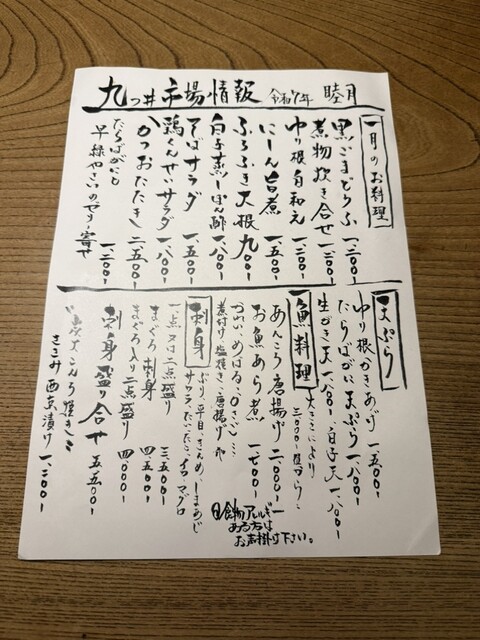 九つ井 市場情報 令和7年 睦月
一月のお料理
黒ごまどうふ 一、二〇〇-
煮物炊き合せ 一、二〇〇-
ゆり根白和え 一、二〇〇-
にしん旨煮 一、五〇〇-
ふろふき大根 九〇〇-
白子蒸しぽん酢 一、八〇〇-
そばサラダ 一、五〇〇-
鶏くんせいサラダ 一、八〇〇-
かつおたたき 二、五〇〇-
たらばがにと
早緑やさいのゼリー寄せ 一、二〇〇-
天ぷら
ゆり根かきあげ 一、五〇〇-
たらばがに天ぷら 一、八〇〇-
生がき天 一、八〇〇- 白子天 一、八〇〇-
魚料理 大きさにより
三〇〇〇-位から
あんこう唐揚げ 二、〇〇〇-
お魚あら煮 一、七〇〇-
めばる、かさご…
煮付け 塩焼き 唐揚げ
刺身 ぶり、平目、きんめ、しまあじ
サワラ、だいだこ、イカ、マグロ
一点又は二点盛り 三、五〇〇-
まぐろ刺身 四、五〇〇-
まぐろ入り二点盛り 四、〇〇〇-
刺身盛り合せ 五、五〇〇-
炭火こんろ焼き
ささみ西京漬け 一、二〇〇-
食物アレルギー
ある方は
お声掛け下さい。